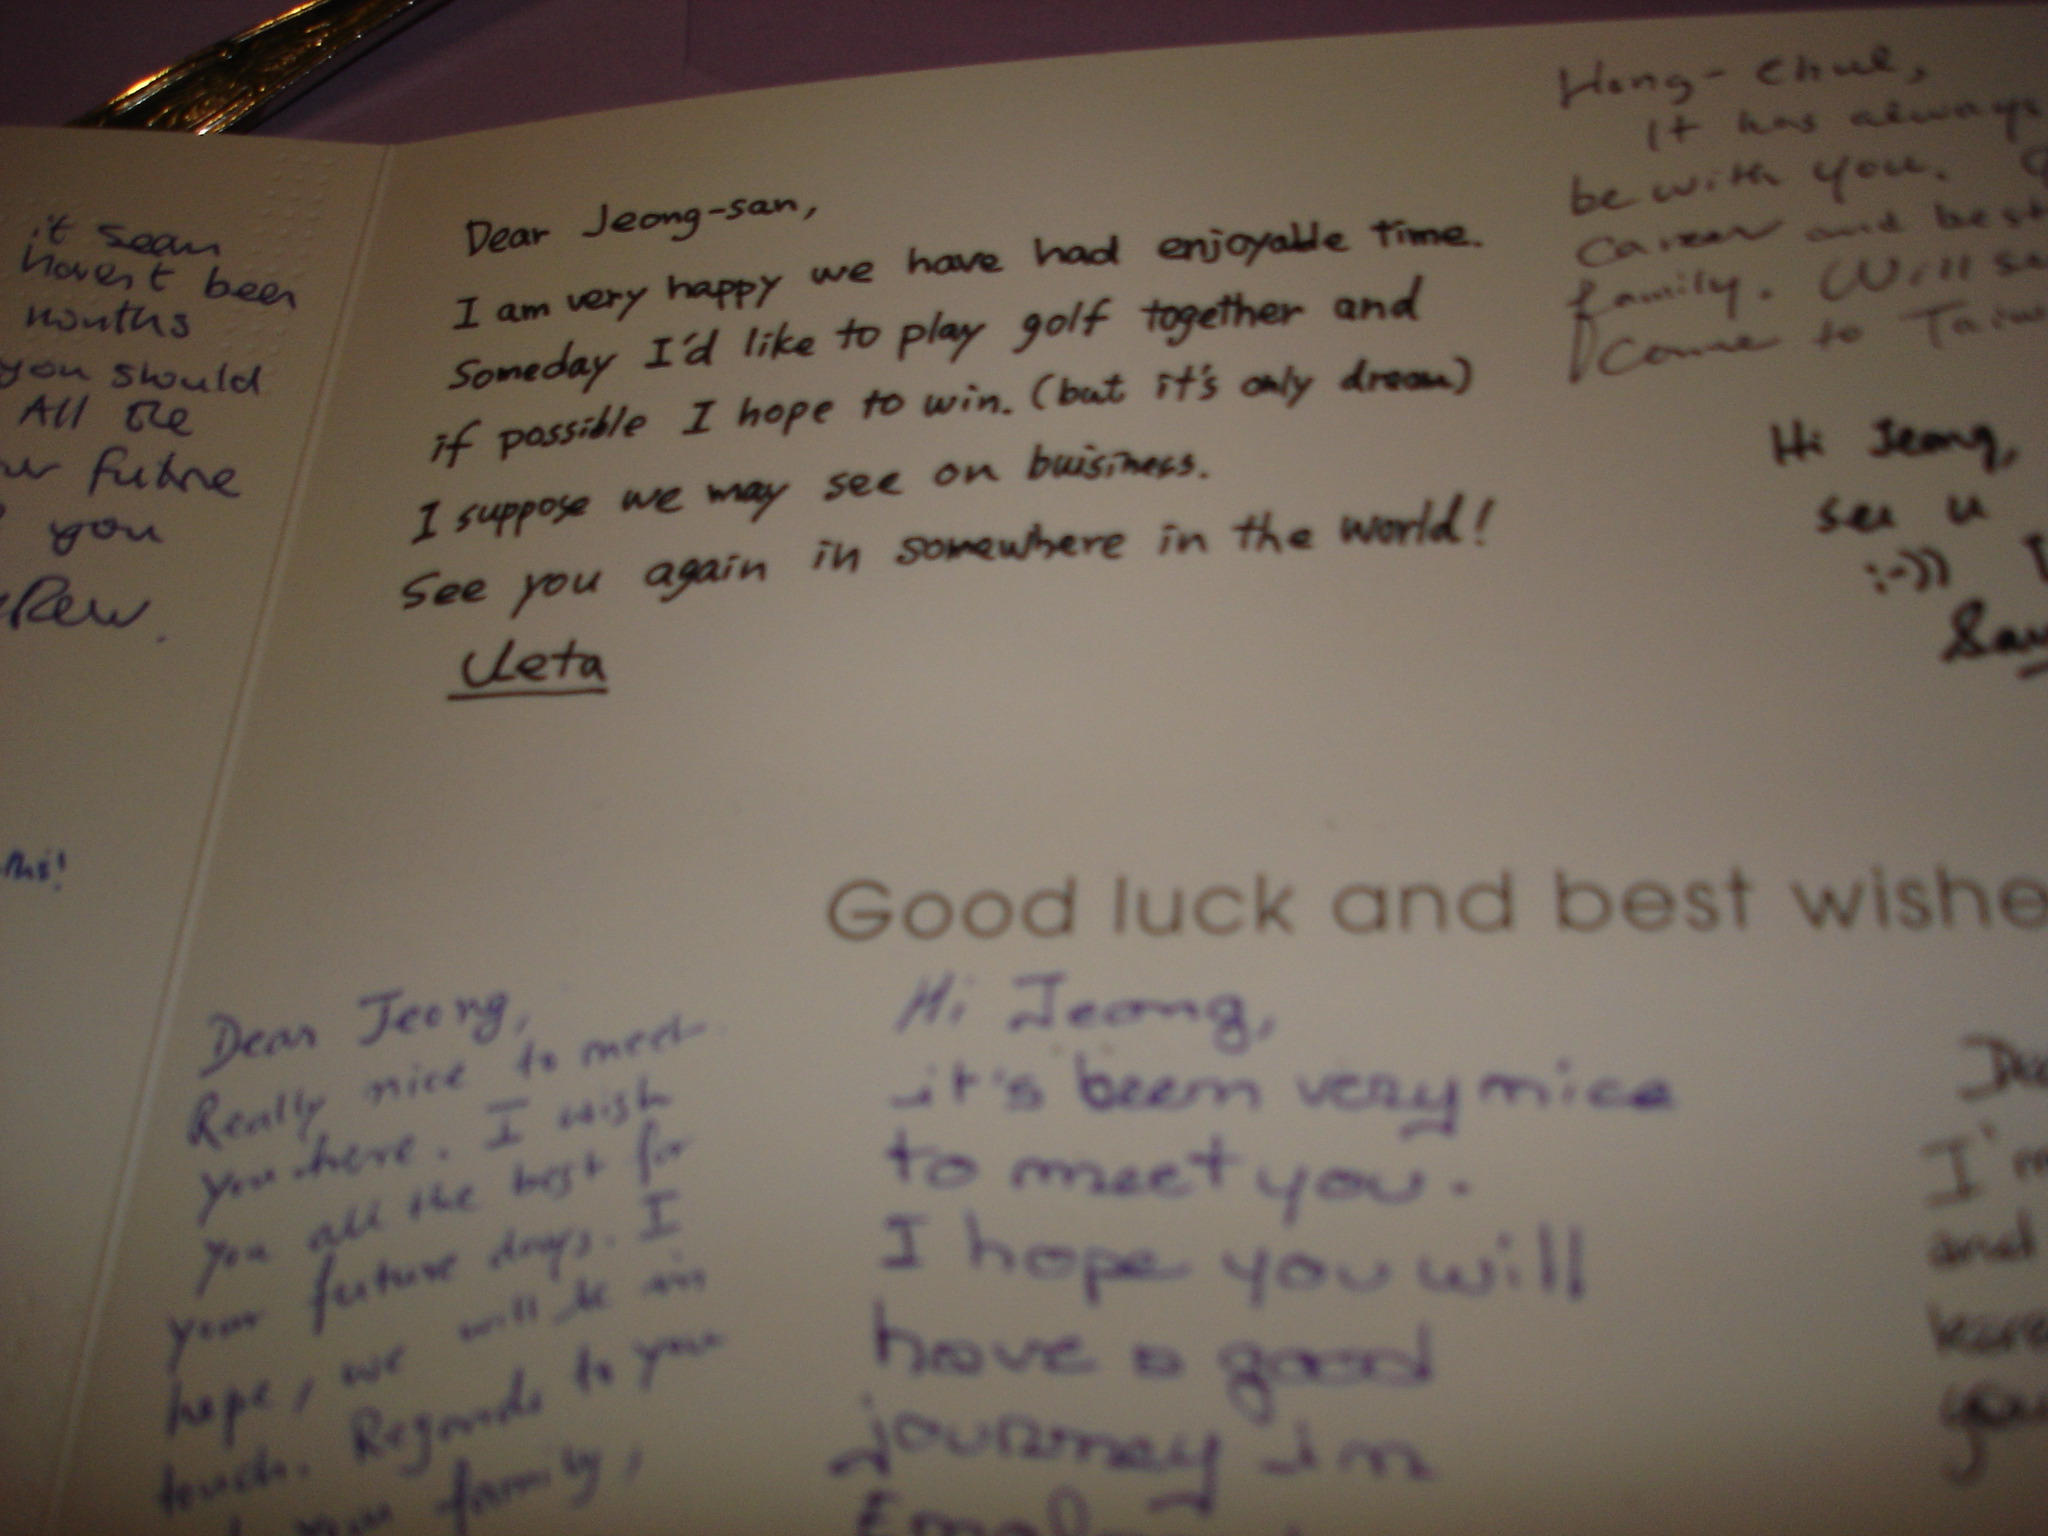 it seam
haven't been
months
you should
All the
future
you
Dear Jeong-san,
I am very happy we have had enjoyable time.
Someday I'd like to play golf together and
if possible I hope to win. (but it's only dream)
I suppose we may see on buisiness.
See you again in somewhere in the world!
Ueta
Hong-Chul,
It has always
be with you.
Career and best
family. Will
Come to
Hi Jeong,
see u
:-))
Good luck and best wishe
Dear Jeong,
Really nice to meet
you here. I wish
you all the best for
your future days. I
hope, we will be in
touch. Regards to you
family,
Hi Jeong,
it's been very nice
to meet you.
I hope you will
have a good
journey in
I'm
and